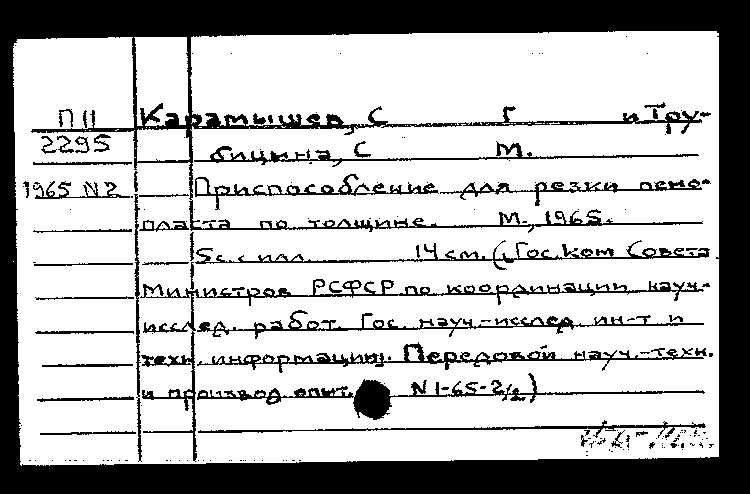 П II Карамышев, С Г и Тру-
2295 бицина, С М.
1965 N2 Приспособление для резки пено-
пласта по толщине. М., 1965.
5с. с илл. 14 см. (Гос. Ком Совета
Министров РСФСР по координации науч.-
исслед. работ. Гос. науч.-исслед. ин-т и
техн. информации. Передовой науч.-техн.
и производ опыт. N 1-65-2/2)